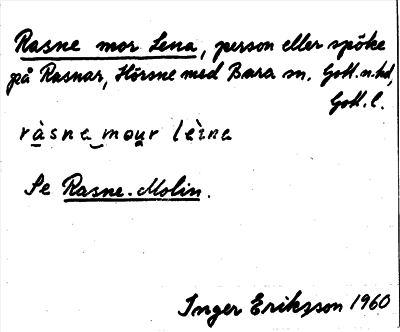 Rasne mor Lena, person eller spöke
på Rasnar, Hörsne med Bara sn. Gotl. n. hd,
Gotl. l.
ràsne mour lèine
Se Rasne-Molin.
Inger Eriksson 1960